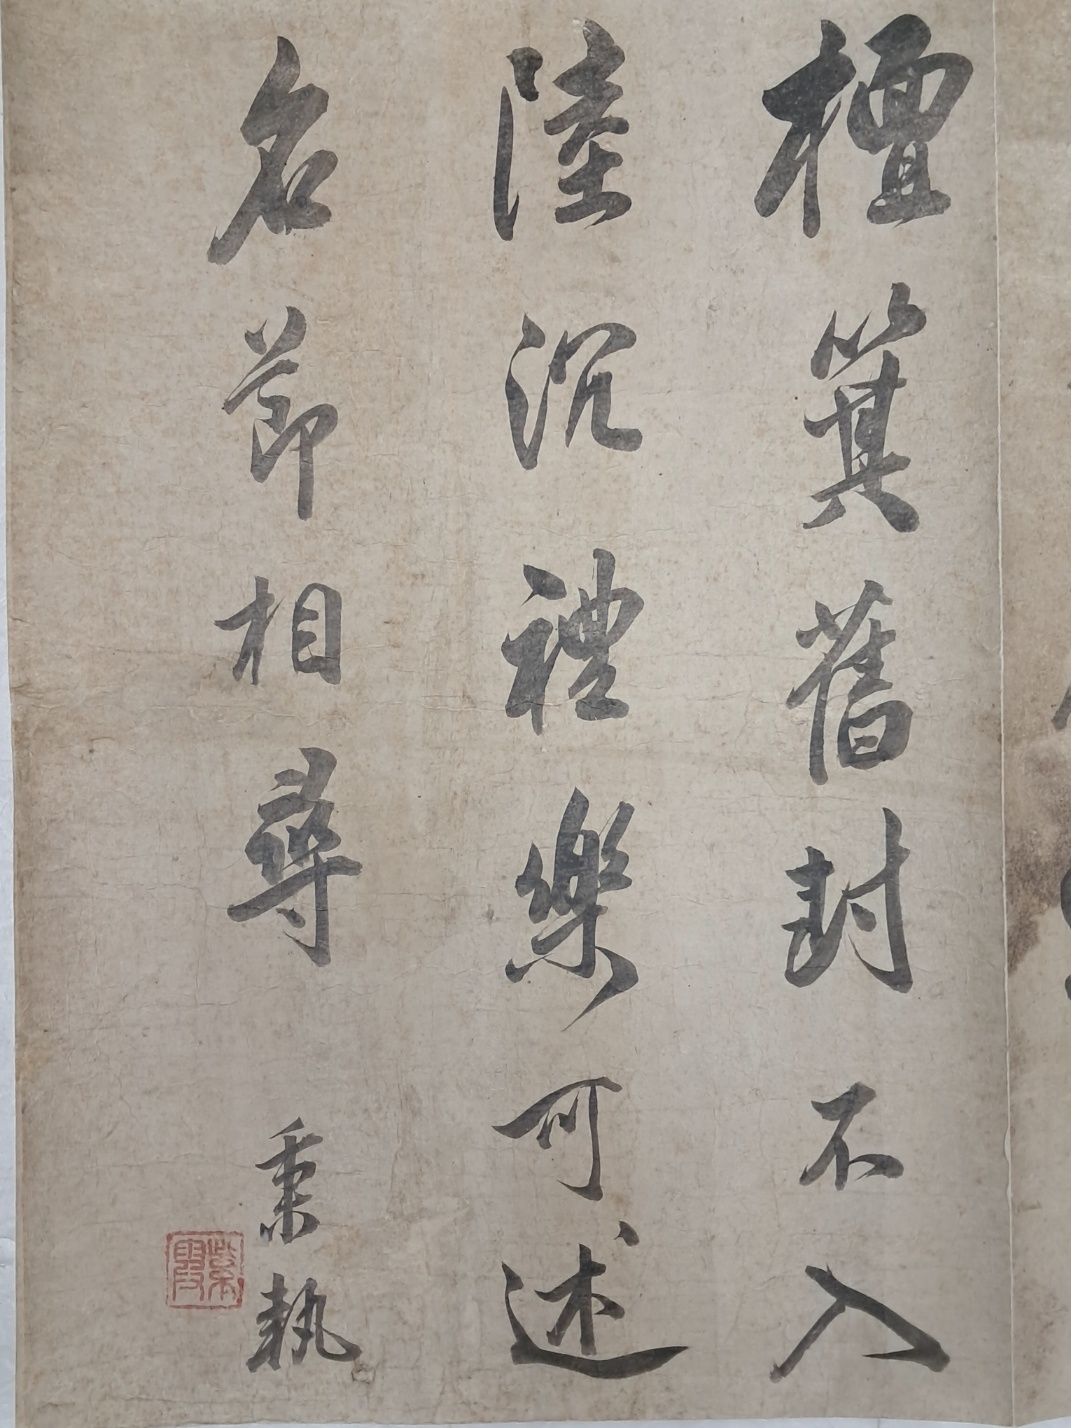 檀箕舊封不入
陸沉禮樂可述
名節相尋
秉執